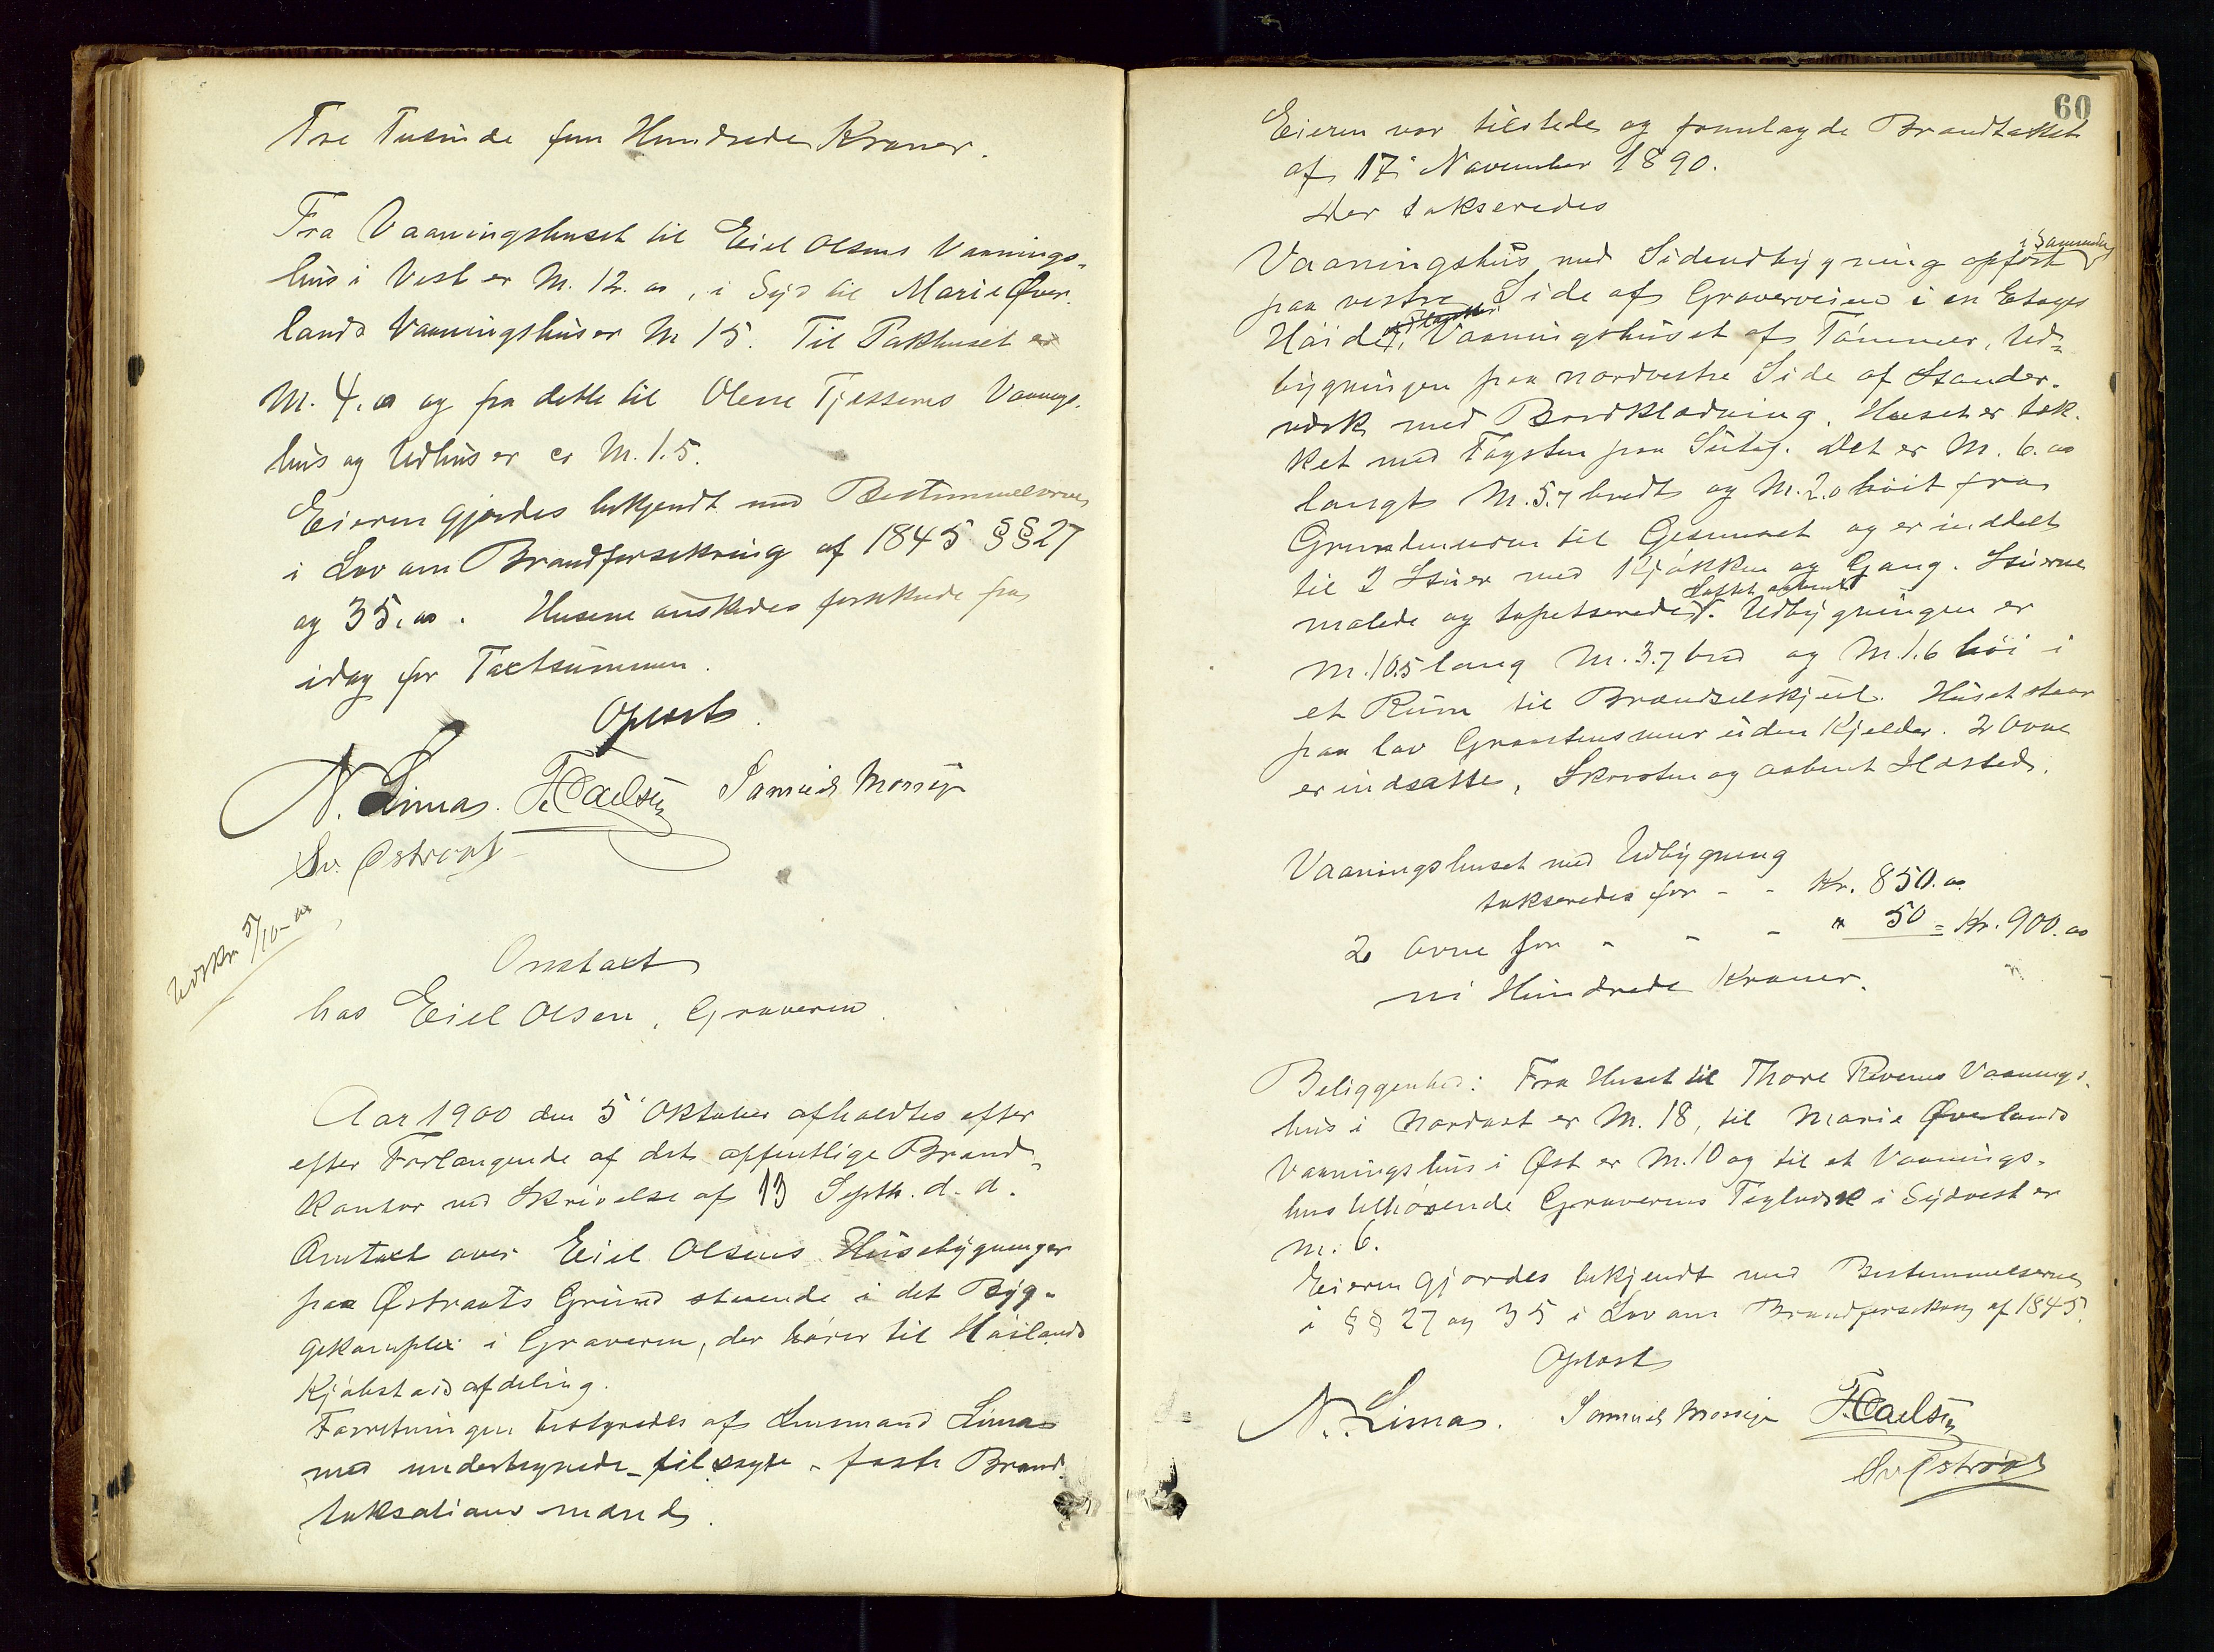 Tre Tusinde fem Hundrede Kroner.
Fra Vaaningshuset til Eiel Olsens Vaanings-
hus i Vest er M. 12.00, i Syd til Marie Øver-
lands Vaaningshus er M 15. Til Pakhuset er
M. 4.00 og fra dette til Olene Tjessems Vaanings-
hus og Udhus er M. 1.5.
Eieren gjordes bekjendt med Bestemmelserne
i Lov om Brandforsikring af 1845 §§ 27
og 35.00. Husene ønskedes forsikrede fra
idag for Taxtsummen.
Oplæst
N. Limas. T. Carlsen Samuel Mossige
Sv. Østraat
Udskr. 5/10-00
Omtaxt
hos Eiel Olsen, Graveren.
Aar 1900 den 5' Oktober afholdtes efter
efter Forlangende af det offentlige Brand-
kontor ved Skrivelse af 13 Septbr. d. a.
Omtaxt over Eiel Olsens Husebygninger
paa Østraats Grund staaende i det Byg-
gekomplex i Graveren, der hører til Høilands
Kjøbstadafdeling.
Forretningen bestyredes af Lensmand Limas
med undertegnede - tilsagte - faste Brand-
taksationsmænd.
60
Eieren var tilstede og fremlagde Brandtaxten
af 17' November 1890.
Der takseredes
Vaaningshus med Sidendbygning opført
paa vestre Side af Graverveien i en Etages
Høide. Vaaningshuset af Tømmer, Ud-
bygningen paa nordvestre Side af Stander-
værk med Bordklædning. Huset er tæk-
ket med Tagsten paa Sutag. Det er M. 6.00
langt M. 5.7 bredt og M. 2.0 høit fra
Grundmuren til Gesimset og er inddelt
til 2 Stuer med Kjøkken og Gang. Stuerne
malede og tapetserede. Udbygningen er
M. 10.5 lang M. 3.7 bred og M. 1.6 høi i
et Rum til Brændselskjul. Huset staar
paa lav Graastensmur uden Kjelder. 2 Ovne
er indsatte, Skorsten og aabent Ildsted.
Vaaningshuset med Udbygning
takseredes for - - Kr. 850.00
2 Ovne for - - - " 50 = Kr. 900.00
ni Hundrede Kroner.
Beliggenhed: Fra Huset til Thore Revems Vaanings-
hus i Nordost er M. 18, til Marie Øverlands
Vaaningshus i Øst er M. 10 og til et Vaanings-
hus tilhørende Graverens Teglværk i Sydvest er
M. 6.
Eieren gjordes bekjendt med Bestemmelserne
i §§ 27 og 35 i Lov om Brandforsikring af 1845.
Oplæst
N. Limas. Samuel Mossige T. Carlsen
Sv Østraat